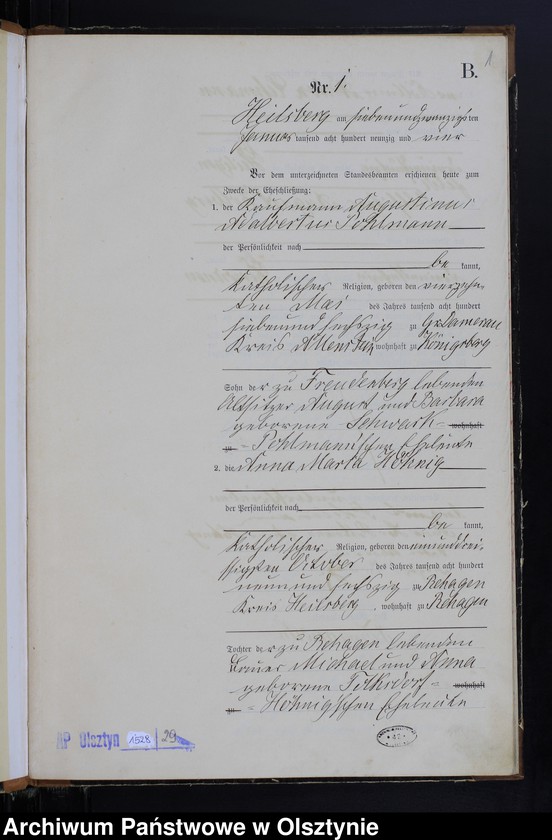 1
B.
Nr. 1.
Heilsberg am siebenundzwanzigsten
Januar tausend acht hundert neunzig und vier
Vor dem unterzeichneten Standesbeamten erschienen heute zum
Zwecke der Eheschließung:
1. der Kaufmann Augustinus
Adalbertus Pohlmann
der Persönlichkeit nach
be kannt,
katholischer Religion, geboren den vierzehn-
ten Mai des Jahres tausend acht hundert
siebenundsechszig zu Gr. Damerau
Kreis Allenstein, wohnhaft zu Königsberg
Sohn der zu Freudenberg lebenden
Altsitzer August und Barbara
geborene Schwark- wohnhaft
zu - Pohlmann'schen Eheleute
2. die Anna Maria Höhnig
der Persönlichkeit nach
be kannt,
katholischer Religion, geboren den einunddrei-
ssigsten October des Jahres tausend acht hundert
neunundsechszig zu Rehagen
Kreis Heilsberg, wohnhaft zu Rehagen
Tochter der zu Rehagen lebenden
Bauer Michael und Anna
geborene Tolksdorf- wohnhaft
zu - Höhnig'schen Eheleute
AP Olsztyn 1528 29
Archiwum Państwowe w Olsztynie